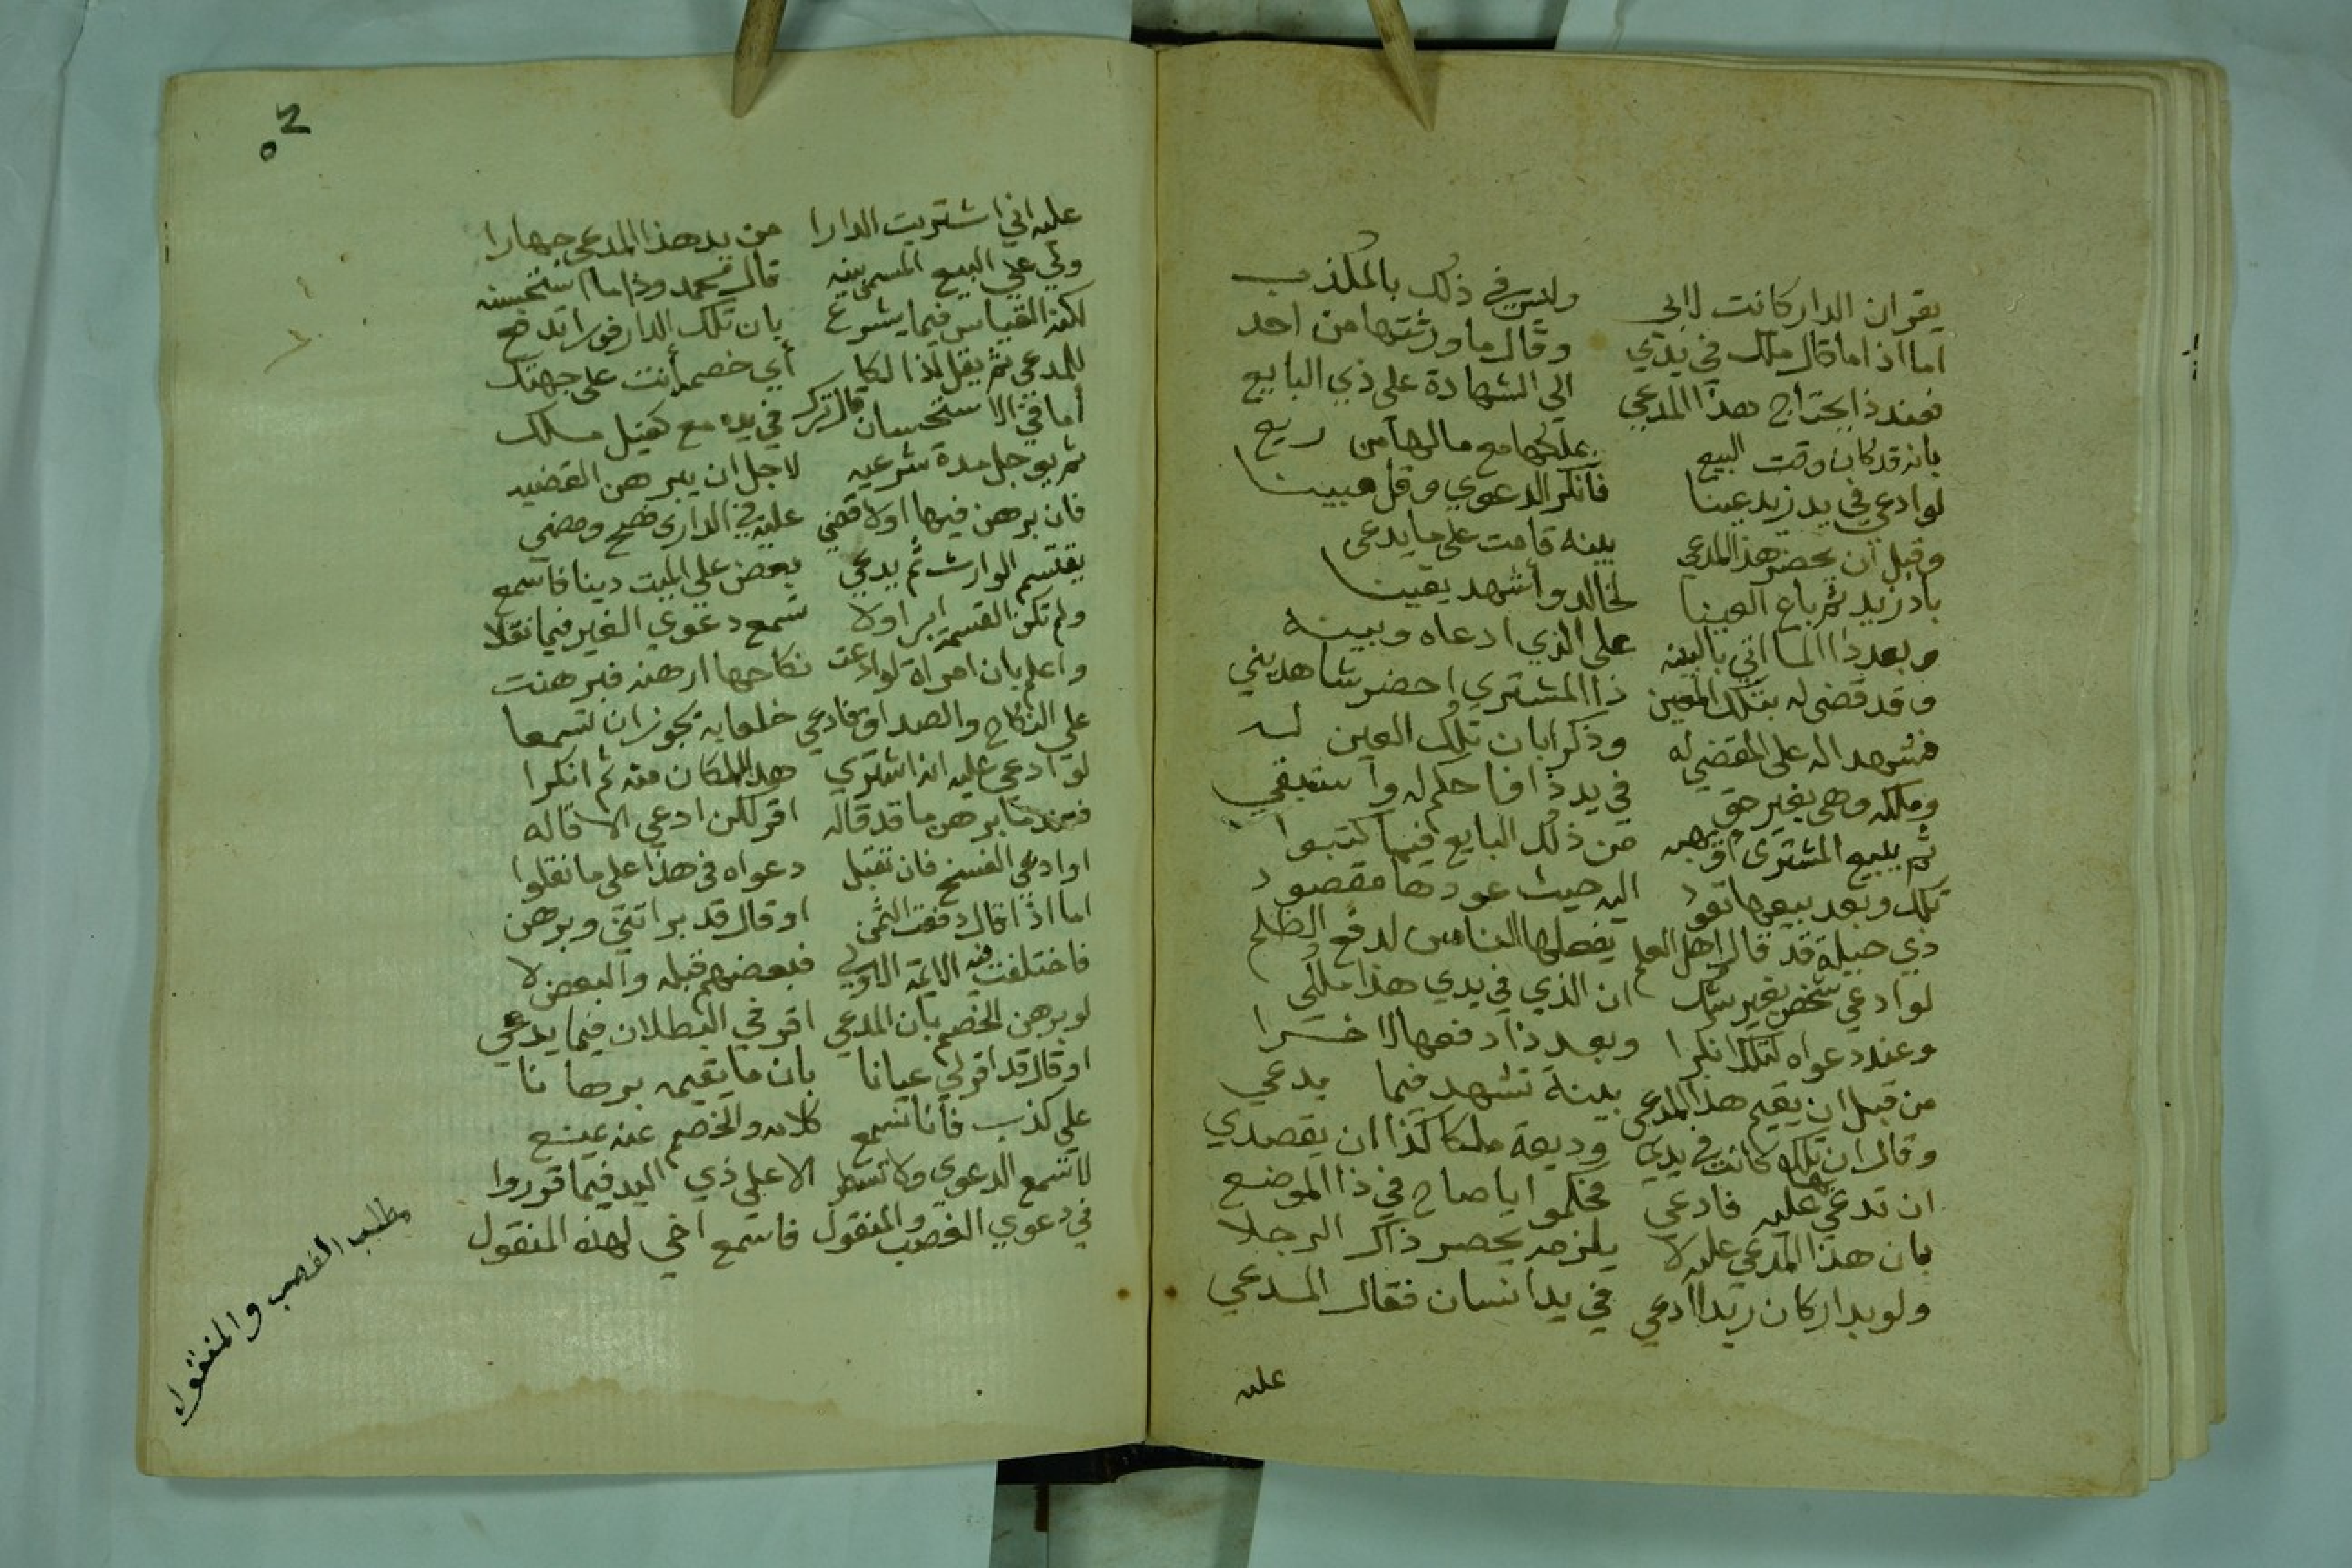 يقر ان الدار كانت لابي وليس في ذلك بالمكذب
اما اذا ما قال ملك في يدي وقال ما ورثتها من احد
فعند ذا يحتاج هذا المدعي الى الشهادة على ذي البايع
بانه قد كان وقت البيع يملكها مع مالها من ريع
لو ادعى في يد زيد عينا فانكر الدعوي وقل مبينا
وقبل ان يحضر هذا المدعي بينة قامت على ما يدعى
بادر زيد ثم باع العينا لخالد وأشهد يقينا
وبعد ذا لما اتى بالبينه على الذي ادعاه وبينه
وقد قضى له بتلك العين ذا المشتري احضر شاهديني
فشهدا له على المقضي له وذكرا بان تلك العين له
وملكه وهي بغير حق في يد ذا فاحكم له واستبقي
ثم يبيع المشتري او يهب من ذلك البايع فيما كتبوا
تلك وبعد بيعها تعود اليه حيث عودها مقصود
ذي حيلة قد قال اهل العلم يفعلها الناس لدفع الظلم
لو ادعي شخص بغير شك ان الذي في يدي هذا ملكي
وعند دعواه لتلك انكرا وبعد ذا دفعها لاخرا
من قبل ان يقيم هذا المدعي بينة تشهد فيما يدعي
وقال ان تلك كانت في يدي وديعة ملكا لذا ان يقصدي
ان تدعي عليه بها فادعي فحكموا ايا صاح في ذا الموضع
بان هذا المدعي عليه لا يلزمه يحضر ذاك الرجلا
ولو بدار كان زيدا ادعي في يد انسان فقال المدعي
عليه
٥٢
عليه اني اشتريت الدارا من يد هذا المدعي جهارا
ولي على البيع المسمى بينه قال محمد وذا ما استحسنه
لكنه القياس فيما يشرع بان تلك الدار فورا تدفع
للمدعي ثم يقل لذا لكا أي خصم أنت على جهتك
أما في الاستحسان قال تترك في يده مع كفيل ملك
ثم يوجل مدة شرعيه لاجل ان يبرهن القضيه
فان برهن فيها اولا قضي عليه في الدار صح ومضى
يقتسم الوارث ثم يدعي بعض على الميت دينا فاسمع
ولم تكن القسمة ابرا ولا تسمع دعوي الغير فيما نقلا
واعلم بان امراة لو ادعت نكاحها ارهنه فبرهنت
على النكاح والصداق فادعي خلعا به يجوز ان تسمعا
لو ادعى عليه انه اشتري هذا المكان منه ثم انكرا
فعندما برهن ما قد قاله اقر لكن ادعي الاقاله
او ادعي الفسخ فان تقبل دعواه في هذا على ما نقلوا
اما اذا قال دفعت الثمن او قال قد براتني وبرهن
فاختلفت فيه الايمة الاولي فبعضهم قبله والبعض لا
لو برهن الخصم بان المدعي اقر في البطلان فيما يدعي
او قال قد اقر لي عيانا بان ما يقيمه برهانا
على كذب فاننا نسمع كلامه والخصم عنه يمنع
لا تسمع الدعوي ولا تسطر الا على ذي اليد فيما قرروا
في دعوي الغصب والمنقول فاسمع اخي لهذه المنقول
مطلب الغصب والمنقول